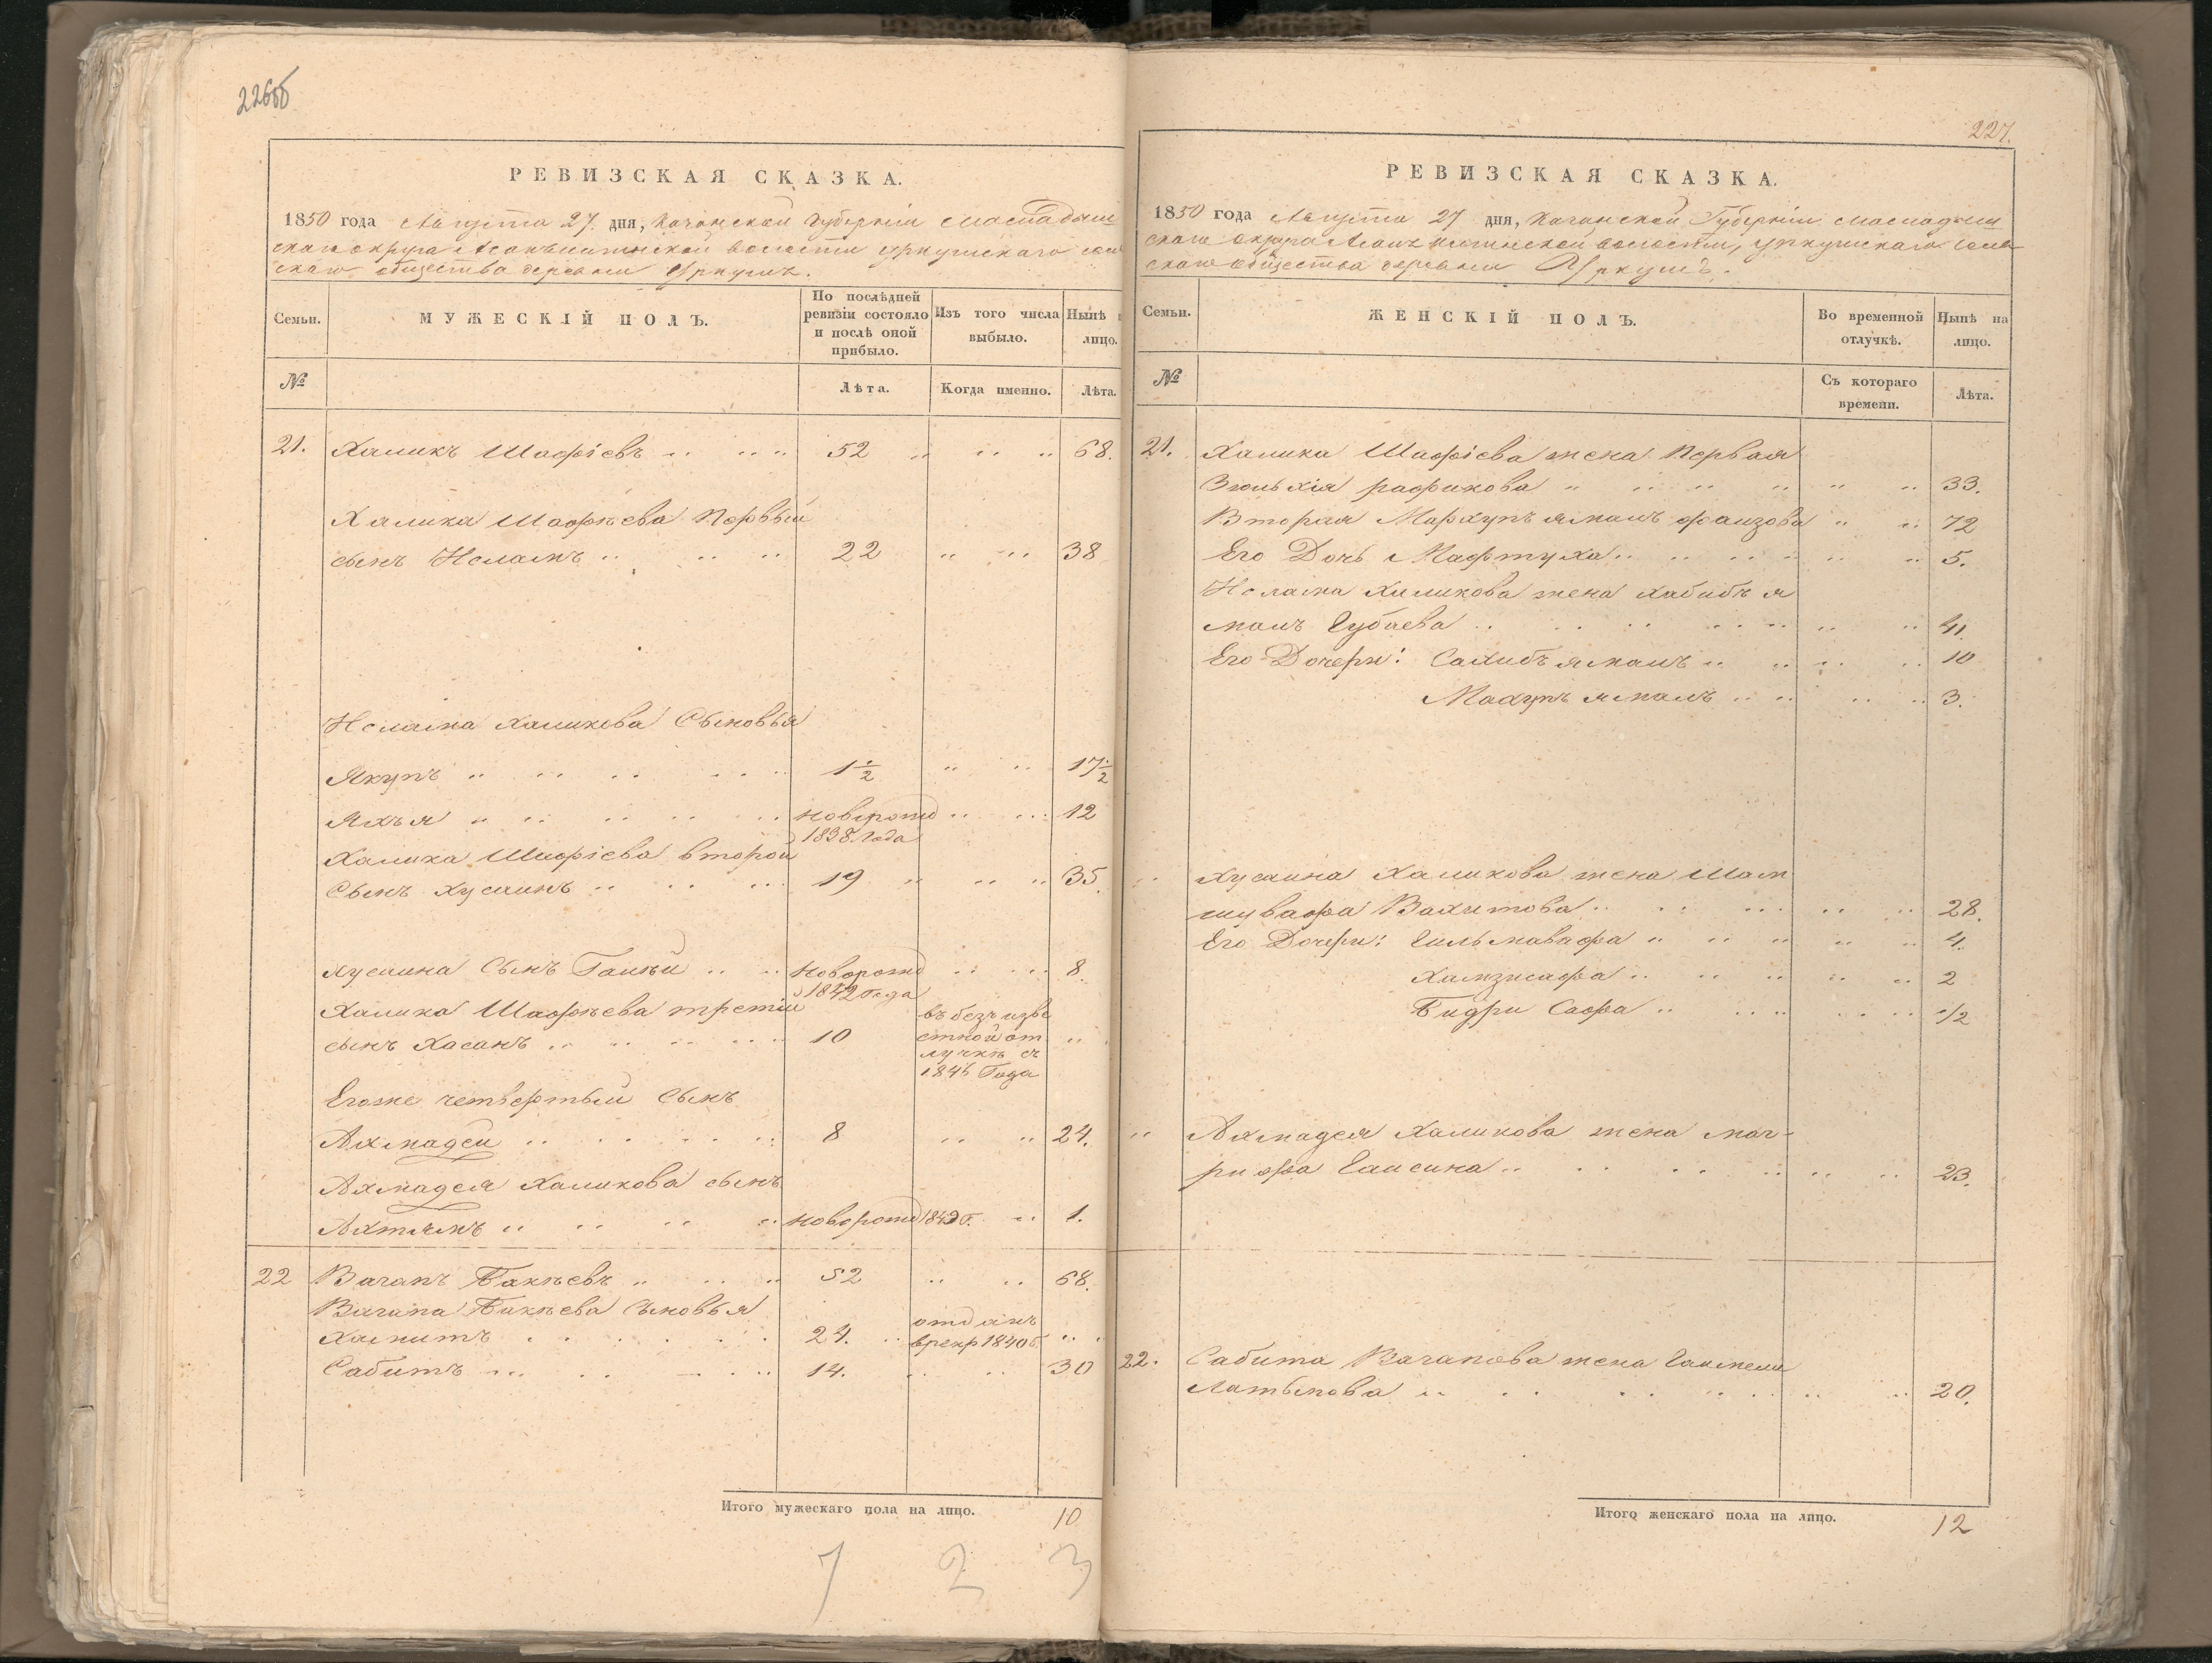 226об
РЕВИЗСКАЯ СКАЗКА.
1850 года Августа 27. дня, Казанской Губерніи Мамадыш
скаго округа волости Уркушскаго сель
скаго общества деревни Уркушъ.
Семьи.
МУЖЕСКІЙ ПОЛЪ.
По послѣдней ревизіи состояло и послѣ оной прибыло.
Изъ того числа выбыло.
Нынѣ лицо.
№
Лѣта.
Когда именно.
Лѣта.
21. Халикъ Шафіевъ 52 68.
Халика Шафѣева Первый
сынъ Исламъ 22 38
Ислама Халикова Сыновья
Якупъ 1½ 17½
Яхъя новорожд 12
1838 Года
Халика Шафіева второй
Сынъ Хусаинъ 19 35.
Хусаина Сынъ новорожд 8.
1842 Года
Халика Шафѣева третій
сынъ Хасанъ 10 въ безъизве
стной от
лучкѣ съ
1846 Года
Егоже четвертый Сынъ
Ахмадей 8 24.
Ахмадея Халикова сынъ
Ахтямъ новорожд 1849 Г. 1.
22 Вагапъ Бакѣевъ 52 68.
Вагапа Бакѣева Сыновья
Хамитъ 24. отданъ
врекр 1840 г
Сабитъ 14. 30
Итого мужескаго пола на лицо. 10
7 2 3
227.
РЕВИЗСКАЯ СКАЗКА.
1850 года Августа 27 дня, Казанской Губерніи Мамадыш
скаго округа волости, Уркушскаго сель
скаго общества деревни Уркушъ.
Семьи.
ЖЕНСКІЙ ПОЛЪ.
Во временной отлучкѣ.
Нынѣ на лицо.
№
Съ котораго времени.
Лѣта.
21. Халика Шафіева жена Первая
Зюльхія рафикова 33.
Вторая ямалъ фаизова 72
Его Дочь Мафтуха 5.
Ислама Халикова жена Хабибъ я
малъ Губаева 41.
Его Дочери: Сахибъ ямалъ 10
Махупъ ямалъ 3.
Хусаина Халикова жена Шам
шувафа Вахитова 28.
Его Дочери: Гильмавафа 4.
Хамзисафа 2
Бидри Сафа 1/2
Ахмадея Халикова жена маг-
рифа Гаисина 23.
22. Сабита Вагапова жена
Латыпова 20.
Итого женскаго пола на лицо. 12